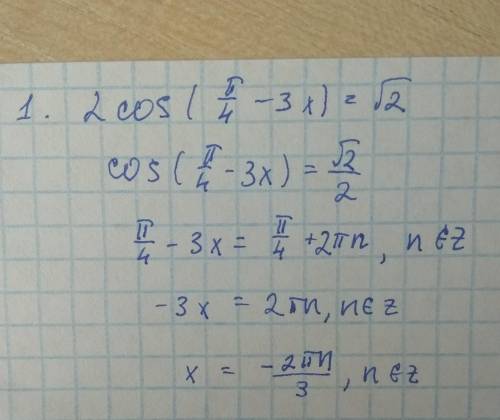 1. 2 cos ( π/4 - 3x ) = √2
cos ( π/4 - 3x ) = √2/2
π/4 - 3x = π/4 + 2πn, n ∈ Z
-3x = 2πn, n ∈ Z
x = -2πn/3, n ∈ Z